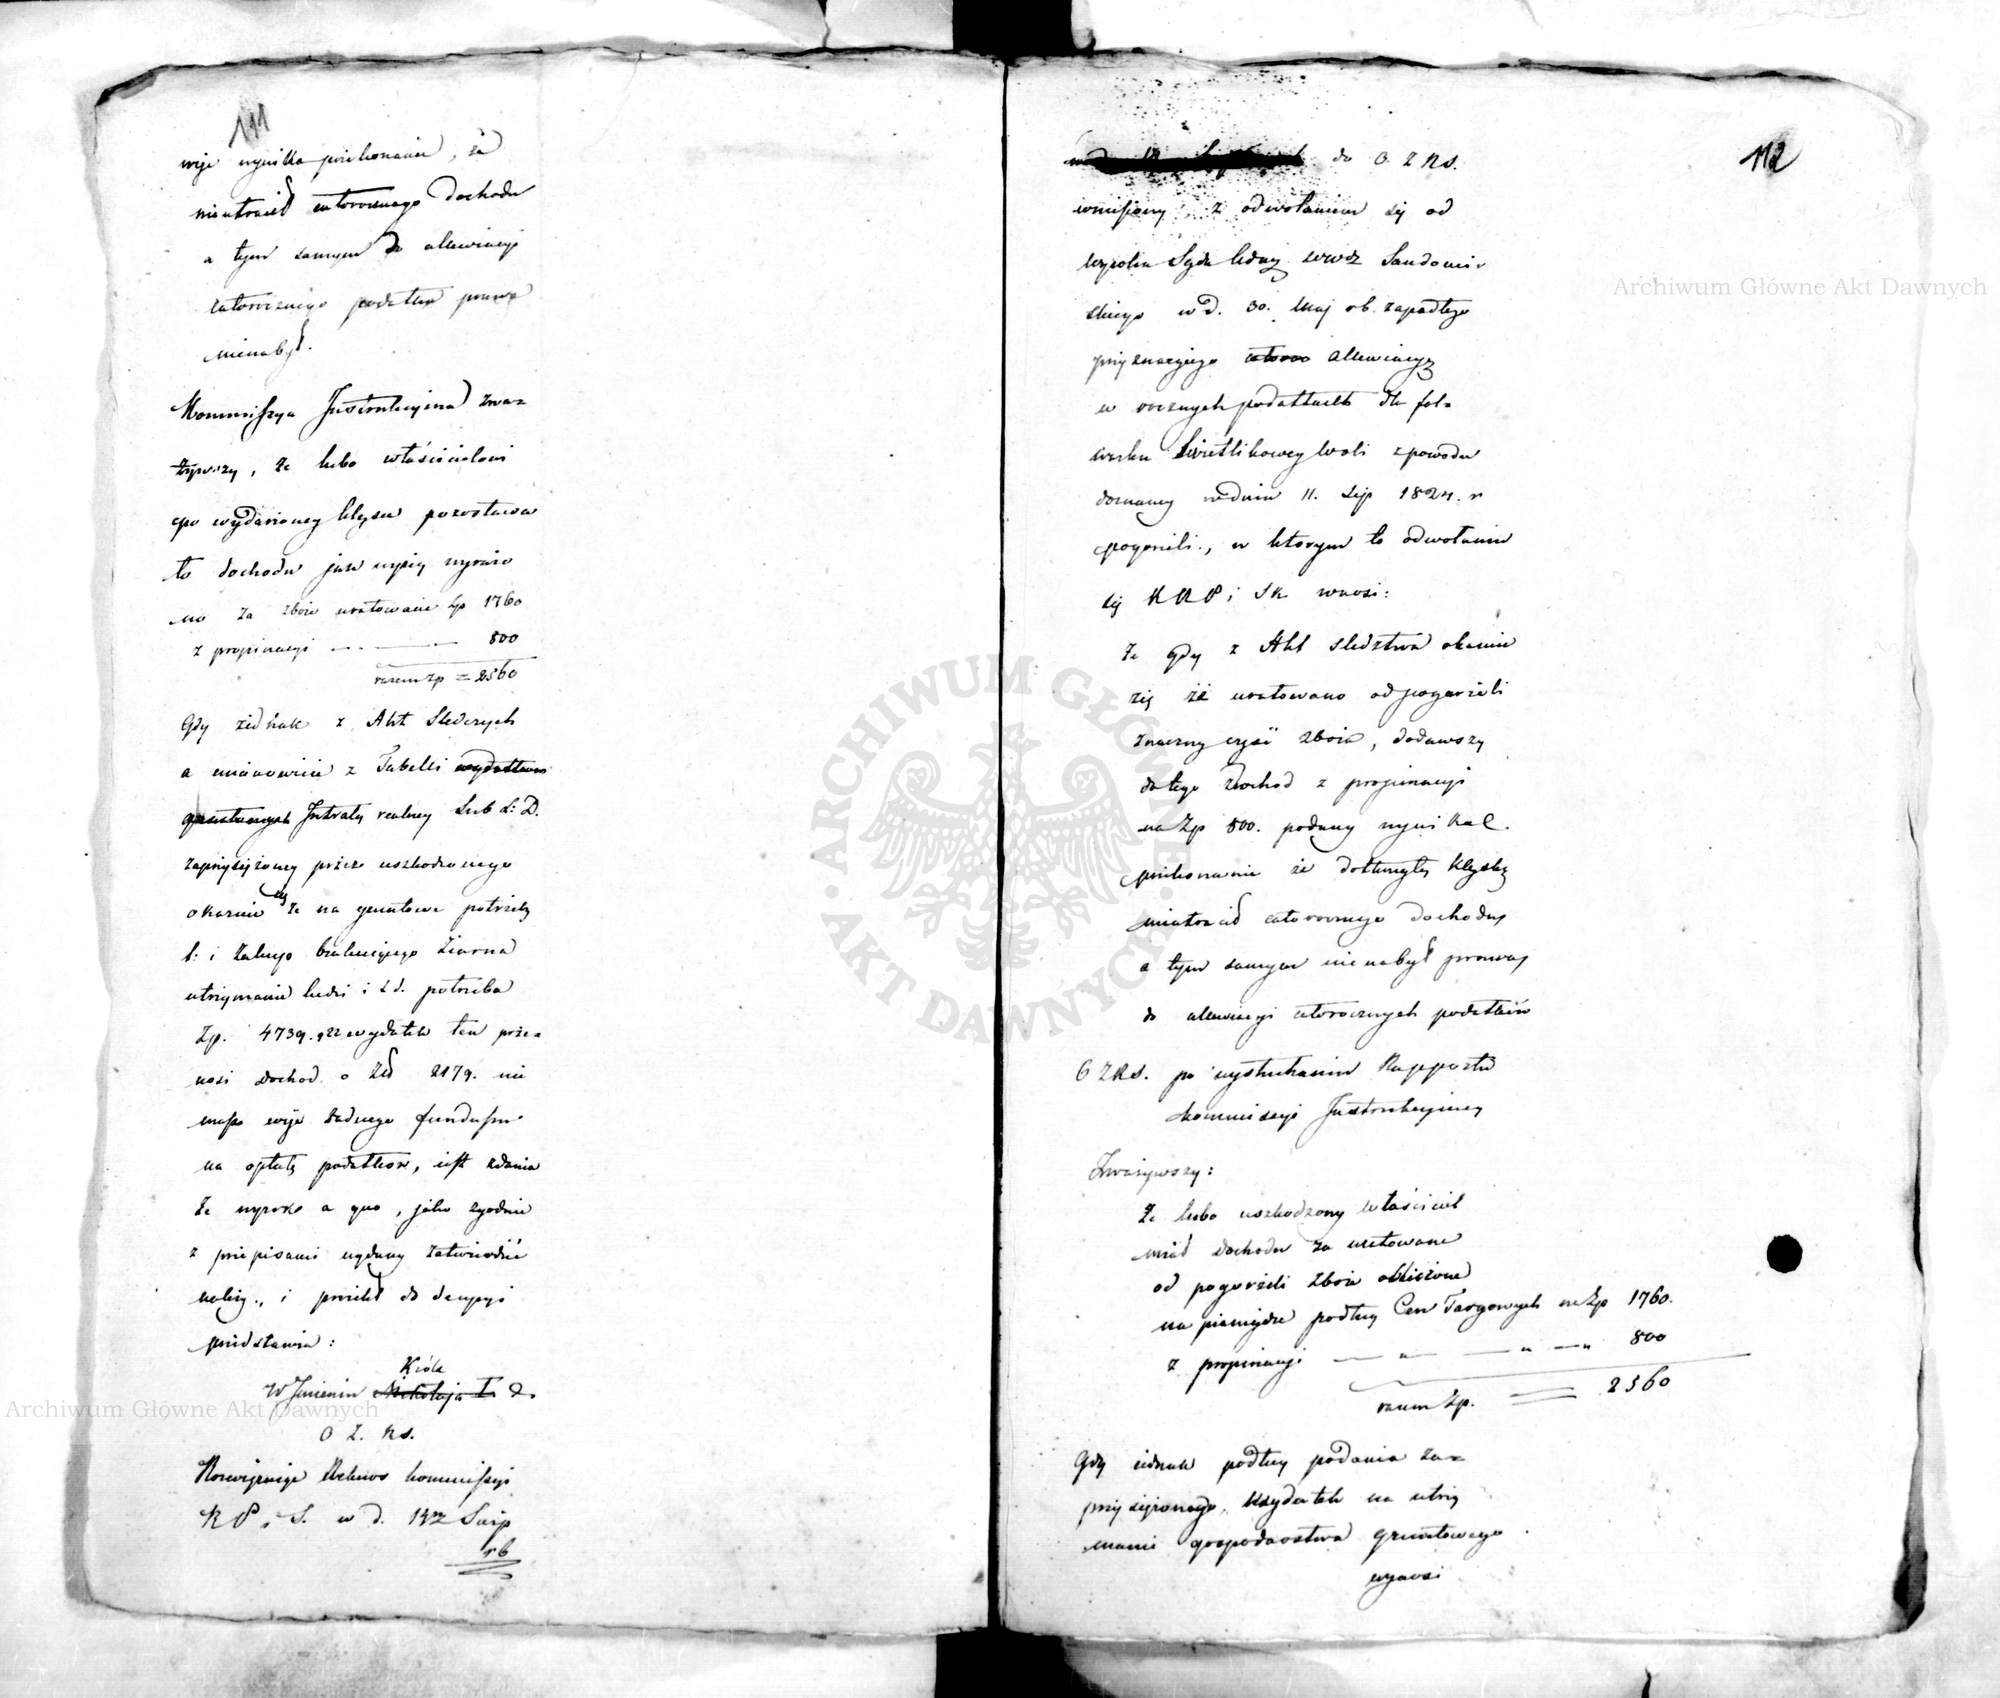 111
więc wynika przekonanie, że
nieutracił całorocznego dochodu
a tym samym do allewiacyi
całorocznego podatku prawa
nienabył.
Kommissya Instrukcyina zwa-
żywszy, że lubo właścicielowi
po wydarzoney klęsce pozostawa
ło dochodu jak wyżey wyrażo
no za zboże uratowane Zp 1760
z propinacyi 800
razem Zp = 2560
Gdy jednak z Akt Sledczych
a mianowicie z Tabelli
Intraty realney Sub L: D.
zaprzysiężoney przez uszkodzonego
okazuie się że na gruntowe potrzeby
t: i zakup brakuiącego ziarna
utrzymanie ludzi i t d. potrzeba
Zp. 4739. wydatek ten prze-
nosi dochod o Zł 2179. nie
masz więc żadnego funduszu
na opłatę podatków, iest zdania
że wyrok a quo, jako zgodnie
z przepisami wydany zatwierdzić
należy., i proiekt do decyzyi
przedstawia:
Króla
W Imieniu Mikołaja I &.
O Z. RS.
Rozwiązuiąc Rekurs Kommissyi
R P i S. w d. Sierp
rb
112
do O Z RS.
wniesiony z odwołaniem się od
wyroku Sądu Wdzt Sandomir
skiego w d. 30. Maj rb. zapadłego
przyznaiącego allewiacyę
w rocznych podatkach dla fol-
warku Świetlikowey Woli z powodu
doznaney w dniu 11. Sip 1824. r
pogorzeli., w ktorym to odwołaniu
się K R P i SK wnosi:
że gdy z Akt sledztwa okazuie
się że uratowano od pogorzeli
znaczny część zboża, dodawszy
do tego dochod z propinacyi
na Zp 800. podany wynika
przekonanie że dotknięty klęską
nieutracił całorocznego dochodu
a tym samym nienabył prawa
do allewiacyi całorocznych podatków
O Z RS. po wysłuchaniu Rapportu
Kommissyi Instrukcyiney
Zważywszy:
że lubo uszkodzony właściciel
miał dochodu za uratowane
od pogorzeli zboże obliczone
na pieniądze podług Cen Targowych Zp 1760.
z propinacyi 800
razem Zp. 2560
Gdy iednak podług podania za-
przysiężonego, wydatek na utrzy
manie gospodarstwa gruntowego
wynosi
Archiwum Główne Akt Dawnych
ARCHIWUM GŁÓWNE · AKT DAWNYCH ·
Archiwum Główne Akt Dawnych